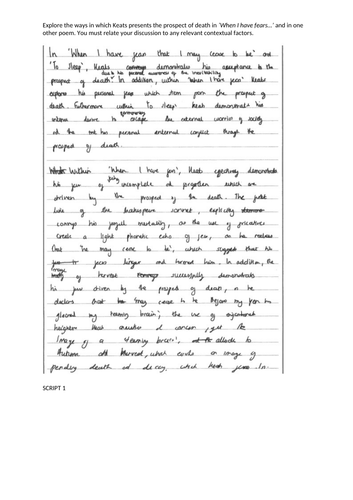 Explore the ways in which Keats presents the prospect of death in 'When I have fears...' and in one
other poem. You may relate your discussion to any relevant contextual factors.
In 'When I have fears that I may cease to be' and
'To Sleep', Keats demonstrates his acceptance to the
prospect of death. In addition, within 'When I have fears' Keats
explores his personal fears which stem from the prospect of
death. Furthermore within 'To Sleep' Keats demonstrates his
intense desire to escape the external worries of society
and the his personal external conflict through the
prospect of death.
Within 'When I have fears', Keats effectively demonstrates
his fear of being incomplete and forgotten which are
driven by the prospect of the death. The first
line of the Shakespeare sonnet, explicitly
conveys his mortality, as the use of fricatives
create a light phonetic echo of fear, as he
that 'he may cease to be', which suggest that his
fears linger and him. In addition, the
image of harvest successfully demonstrates
his fear driven by the prospect of death, as he
declares that 'may cease to be before my pen has
gleaned my teeming brain'; the use of agricultural
Keats of concern, yet the
image of a 'teeming brain', attach to
Autumn and Harvest, which an image of
pending death and decay, which Keats fears. In
SCRIPT 1